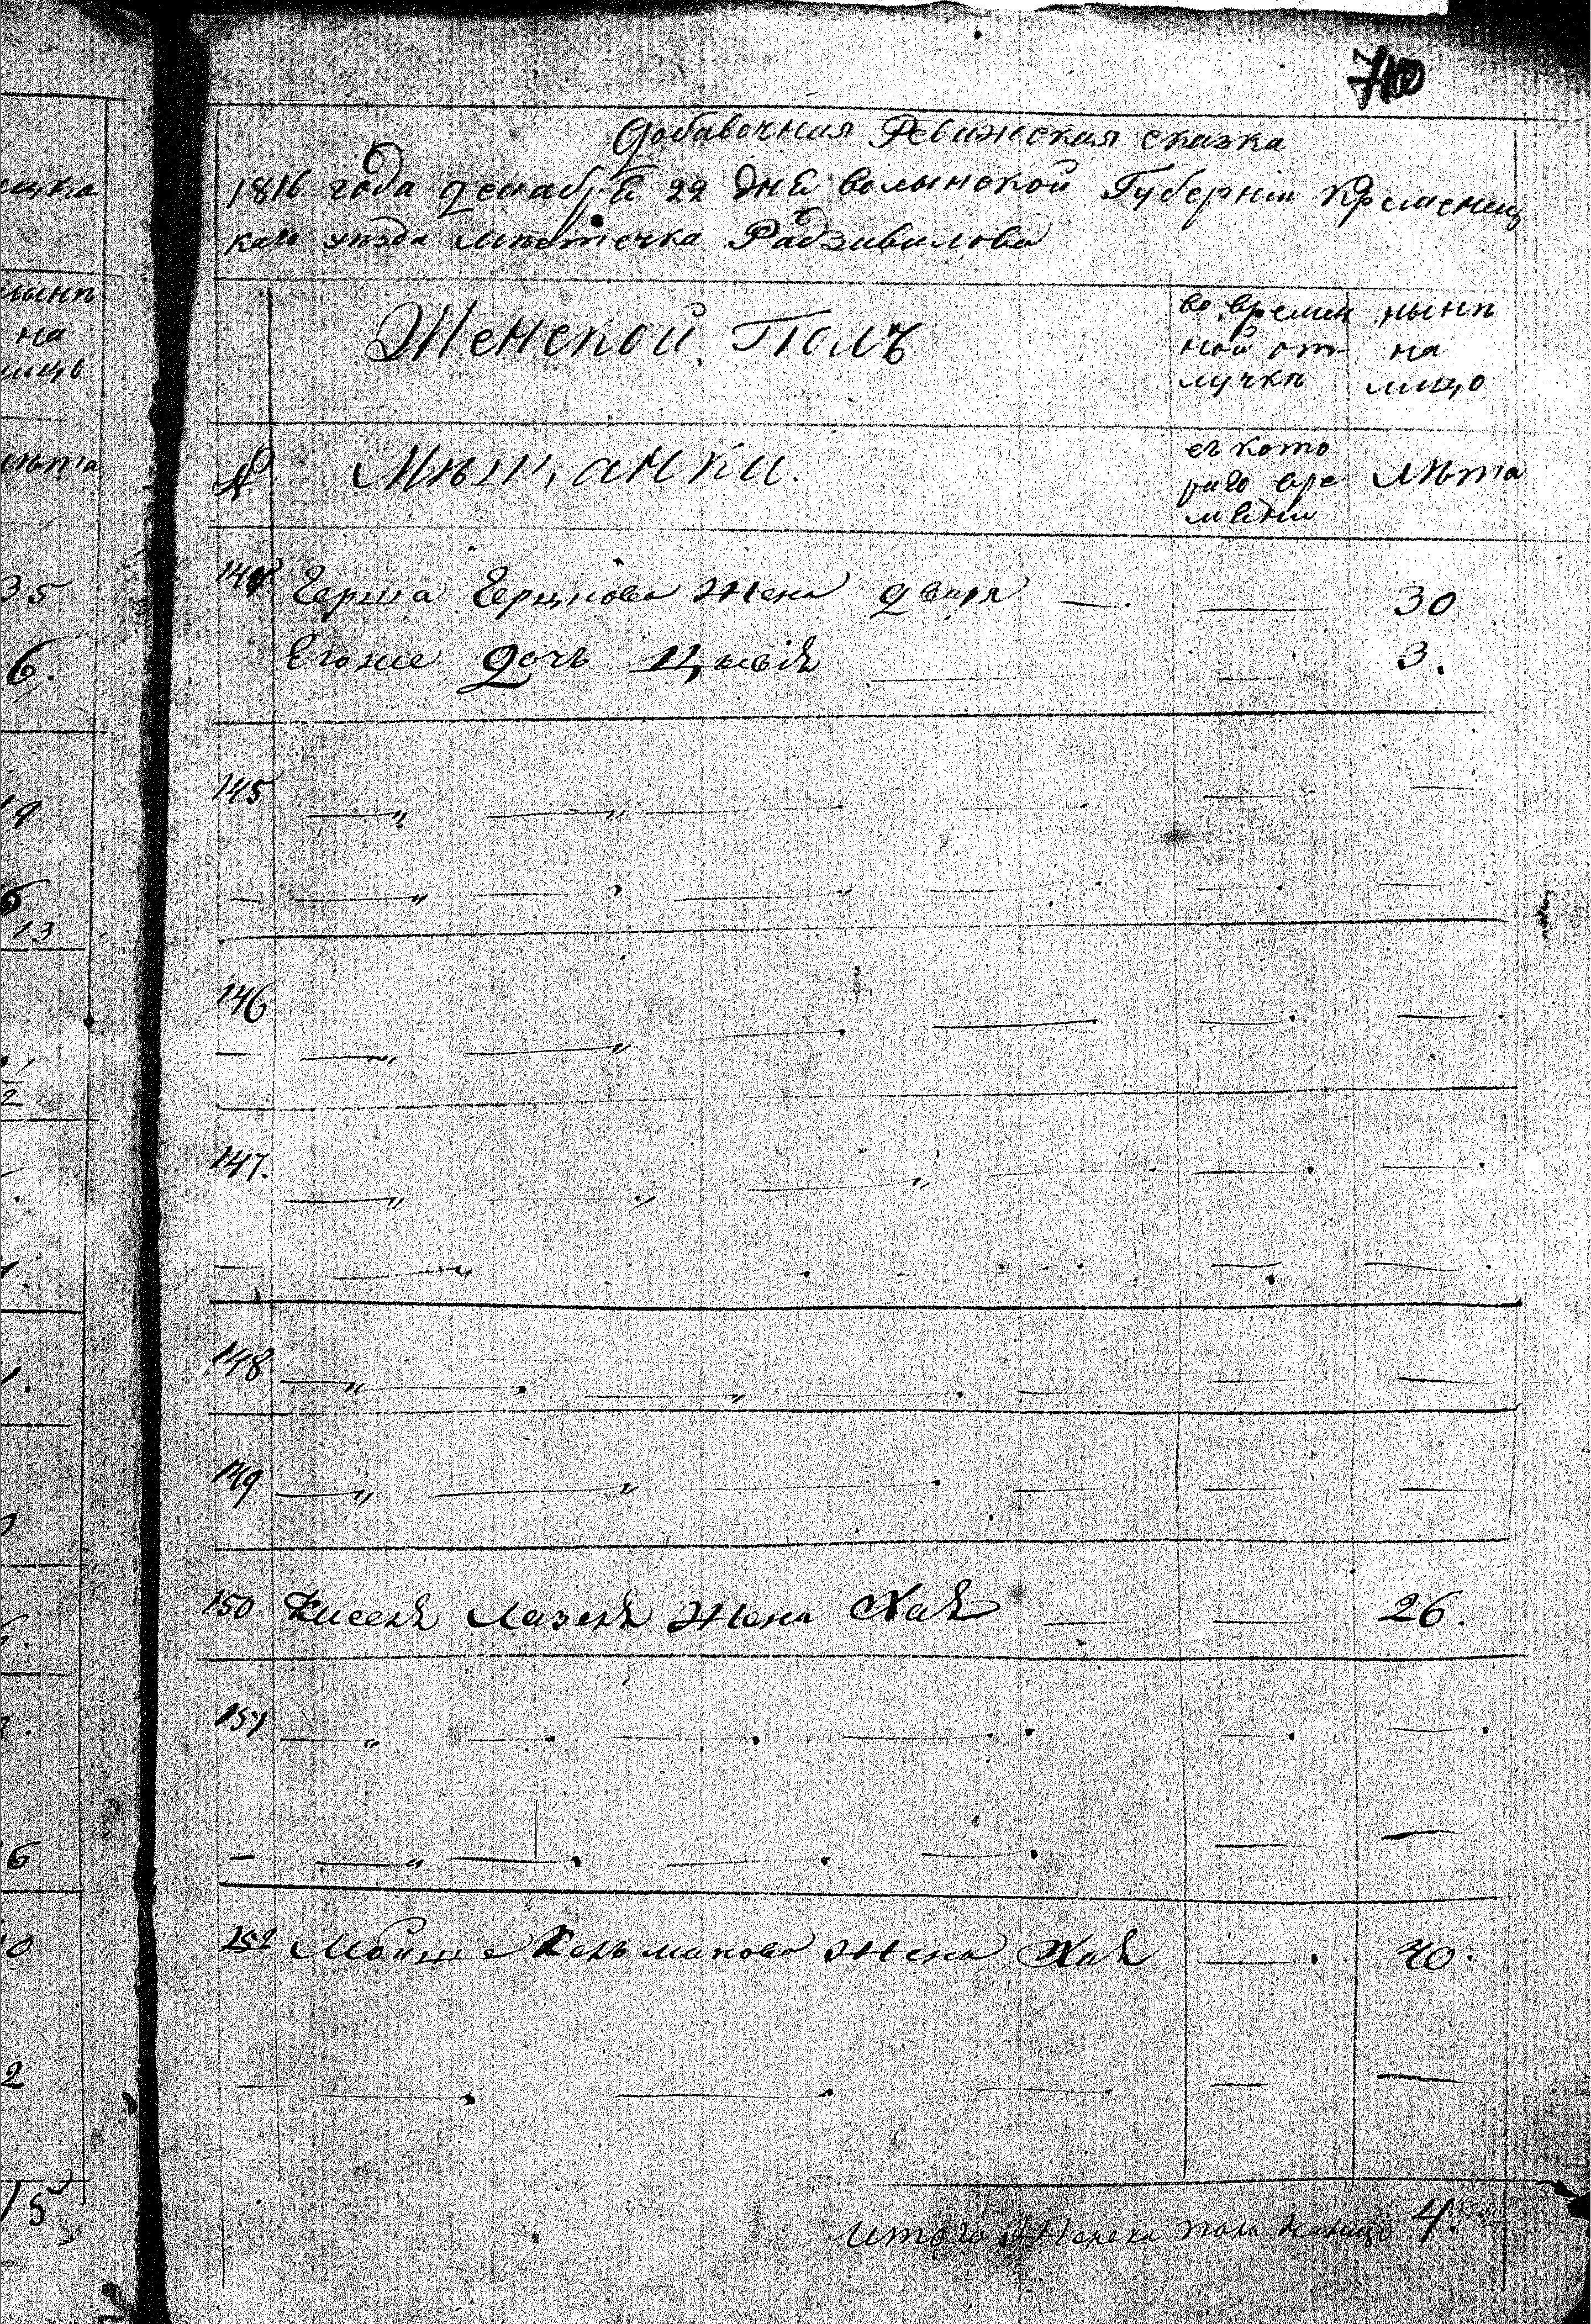 Добавочная Ревижская сказка
1816 года декабря 22 дня волынской Губерніи Кременец
каго уѣзда мѣстечка Радзивилова
Женской Полъ
во времен
ной от
лучкѣ
нынѣ
на
лицо
№ Мѣщанки.
съ кото
раго вре
мени
Лѣта
144 Герша Герцкова жена двыря — — 30
Егоже дочь Цывія — — 3.
145
146
147.
148
149
150 Кисель Лазеля жена Хая — — 26.
151
152 Мойше Кельманова жена Хая — 40.
итого женска пола налицо 4.
нынѣ
на
лицо
лѣта
35
6.
19
13
6
2
15